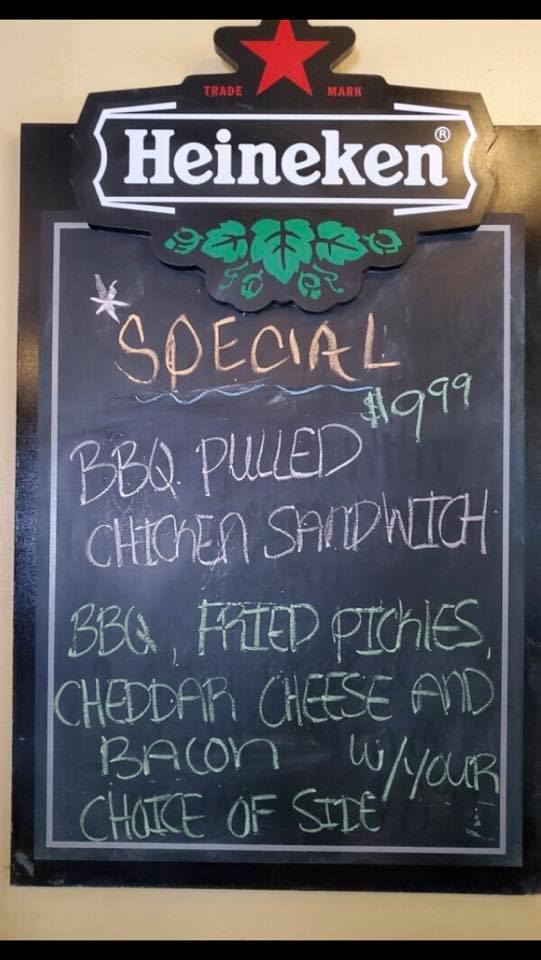 TRADE MARK
Heineken®
*SPECIAL
$9.99
BBQ PULLED
CHICKEN SANDWICH
BBQ, FRIED PICKLES,
CHEDDAR CHEESE AND
BACON W/YOUR
CHOICE OF SIDE